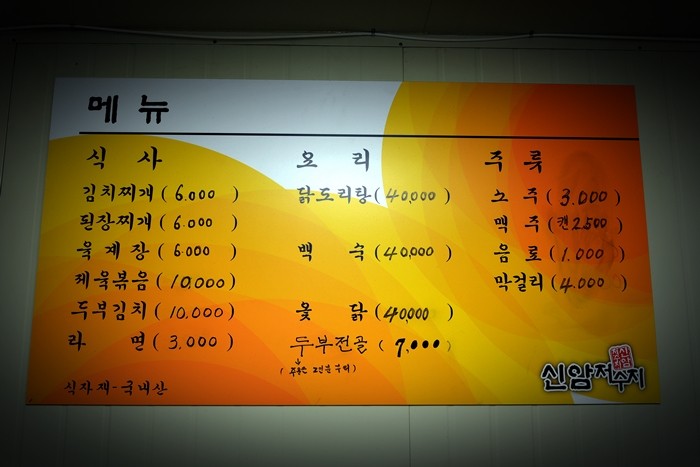 메뉴
식 사
김치찌개 ( 6.000 )
된장찌개 ( 6.000 )
육 계 장 ( 6.000 )
제육볶음 ( 10,000 )
두부김치 ( 10,000 )
라 면 ( 3,000 )
식자재-국내산
요 리
닭도리탕 ( 40,000 )
백 숙 ( 40,000 )
옻 닭 ( 40,000 )
두부전골 ( 7,000 )
주 류
소 주 ( 3.000 )
맥 주 ( 캔 2.500 )
음 료 ( 1.000 )
막걸리 ( 4.000 )
신암저수지